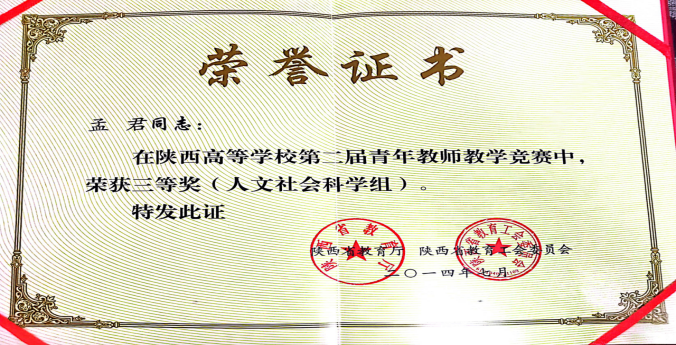 荣誉证书
孟 君同志：
在陕西高等学校第二届青年教师教学竞赛中，
荣获三等奖（人文社会科学组）。
特发此证
陕西省教育厅 陕西省教育工会委员会
二〇一四年七月
陕西省教育厅